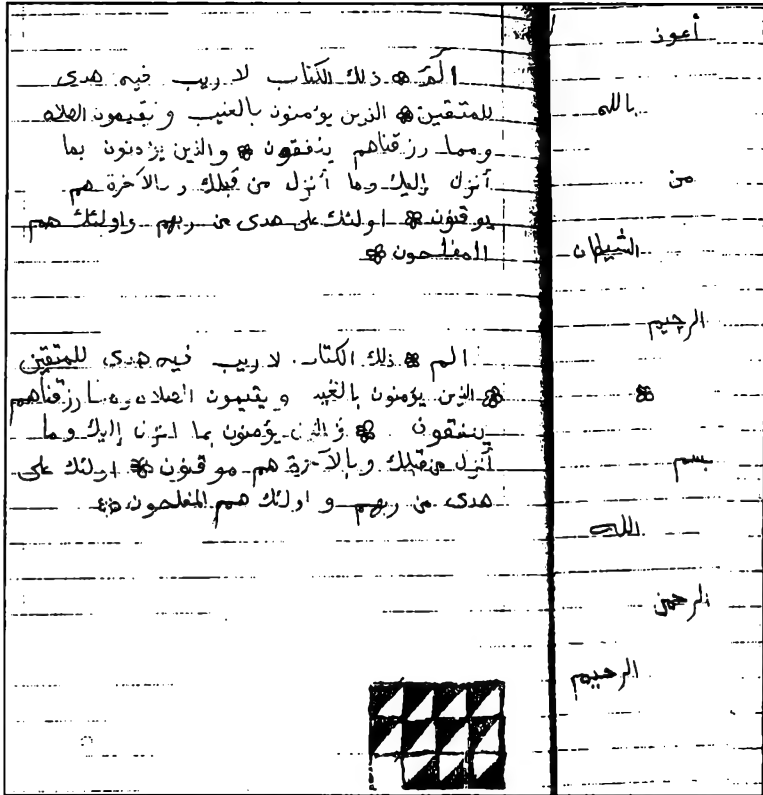 أعوذ
بالله
من
الشيطان
الرجيم
بسم
الله
الرحمن
الرحيم
الم ذلك الكتاب لا ريب فيه هدى
للمتقين الذين يؤمنون بالغيب و يقيمون الصلاه
ومما رزقناهم ينفقون والذين يؤمنون بما
أنزل إليك وما أنزل من قبلك و بالآخرة هم
يوقنون اولئك على هدى من ربهم واولئك هم
المفلحون
الم ذلك الكتاب لا ريب فيه هدى للمتقين
الذين يؤمنون بالغيب و يقيمون الصلاه ومما رزقناهم
ينفقون والذين يؤمنون بما انزل إليك وما
أنزل من قبلك وبالآخرة هم موقنون اولئك على
هدى من ربهم و اولئك هم المفلحون